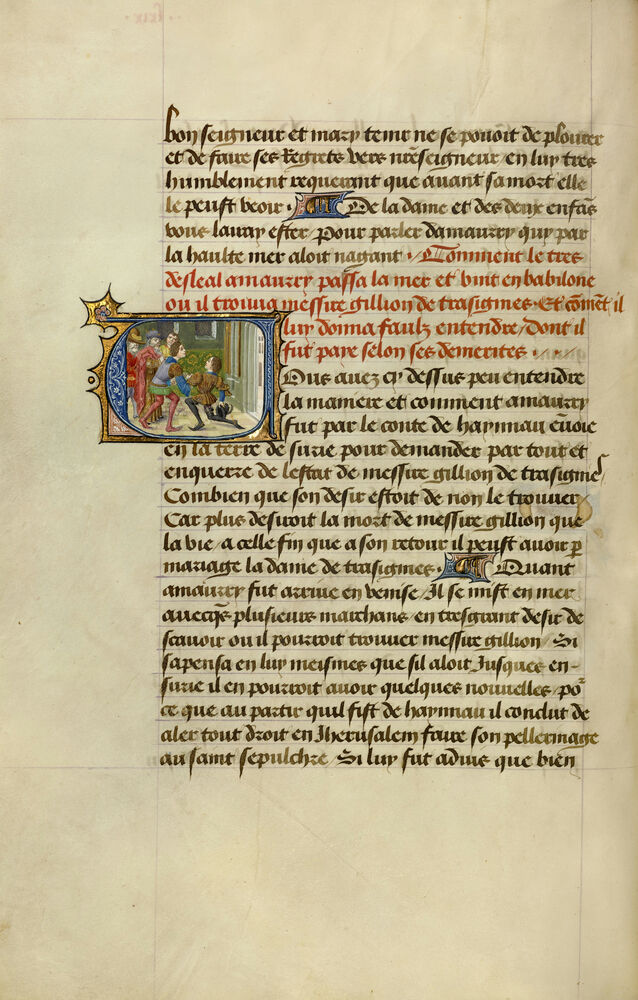 bon seigneur et mary temr ne se povoit de plourer
et de faire ses Regrets vers nr̃eseigneur en luy tres
humblement requerant que avant sa mort elle
le peust veoir. De la dame et des deux enfãs
vous lauray ester, Pour parler damaury quy par
la haulte mer aloit nagant. Comment le tres
desleal amaury passa la mer et vint en babilone
ou il trouva messire gillion de trasignies. Et cõmẽt il
luy donna faulx entendre, dont il
fut paye selon ses demerites.
Vous avez cy dessus peu entendre
la maniere et comment amaury
fut par le conte de haynnau ẽvoie
en la terre de surie pour demander par tout et
enquerre de lestat de messire gillion de trasignies
Combien que son desir estoit de non le trouver
Car plus desiroit la mort de messire gillion que
la vie, a celle fin que a son retour il peust avoir p̱
mariage la dame de trasignies. Quant
amaury fut arrive en venise, Il se mist en mer
avecq̃s plusieurs marchans, en tresgrant desir de
scavoir ou il pourroit trouver messire gillion, Si
sapensa en luy meismes que sil aloit Jusques en-
surie il en pourroit avoir quelques nouvelles, po᷑
ce que au partir quil fist de haynnau il conclut de
aler tout droit en Jherusalem faire son pellerinage
au saint sepulchre, Si luy fut advis que bien